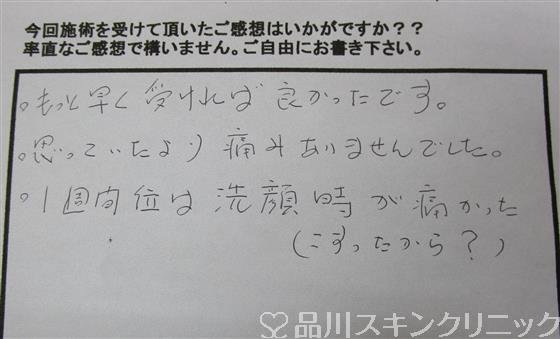 今回施術を受けて頂いたご感想はいかがですか？？
率直なご感想で構いません。ご自由にお書き下さい。
。もっと早く受ければ良かったです。
。思っていたより痛みありませんでした。
。1週間位は洗顔時が痛かった
(こすったから？)
品川スキンクリニック